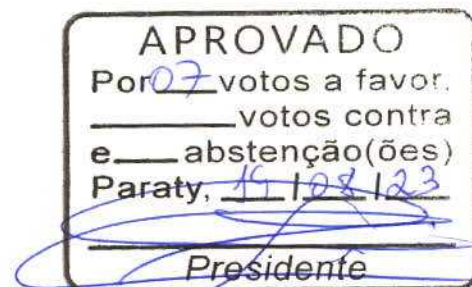 APROVADO
Por 07 votos a favor.
____ votos contra
e___ abstenção(ões)
Paraty, / 08 / 23
Presidente